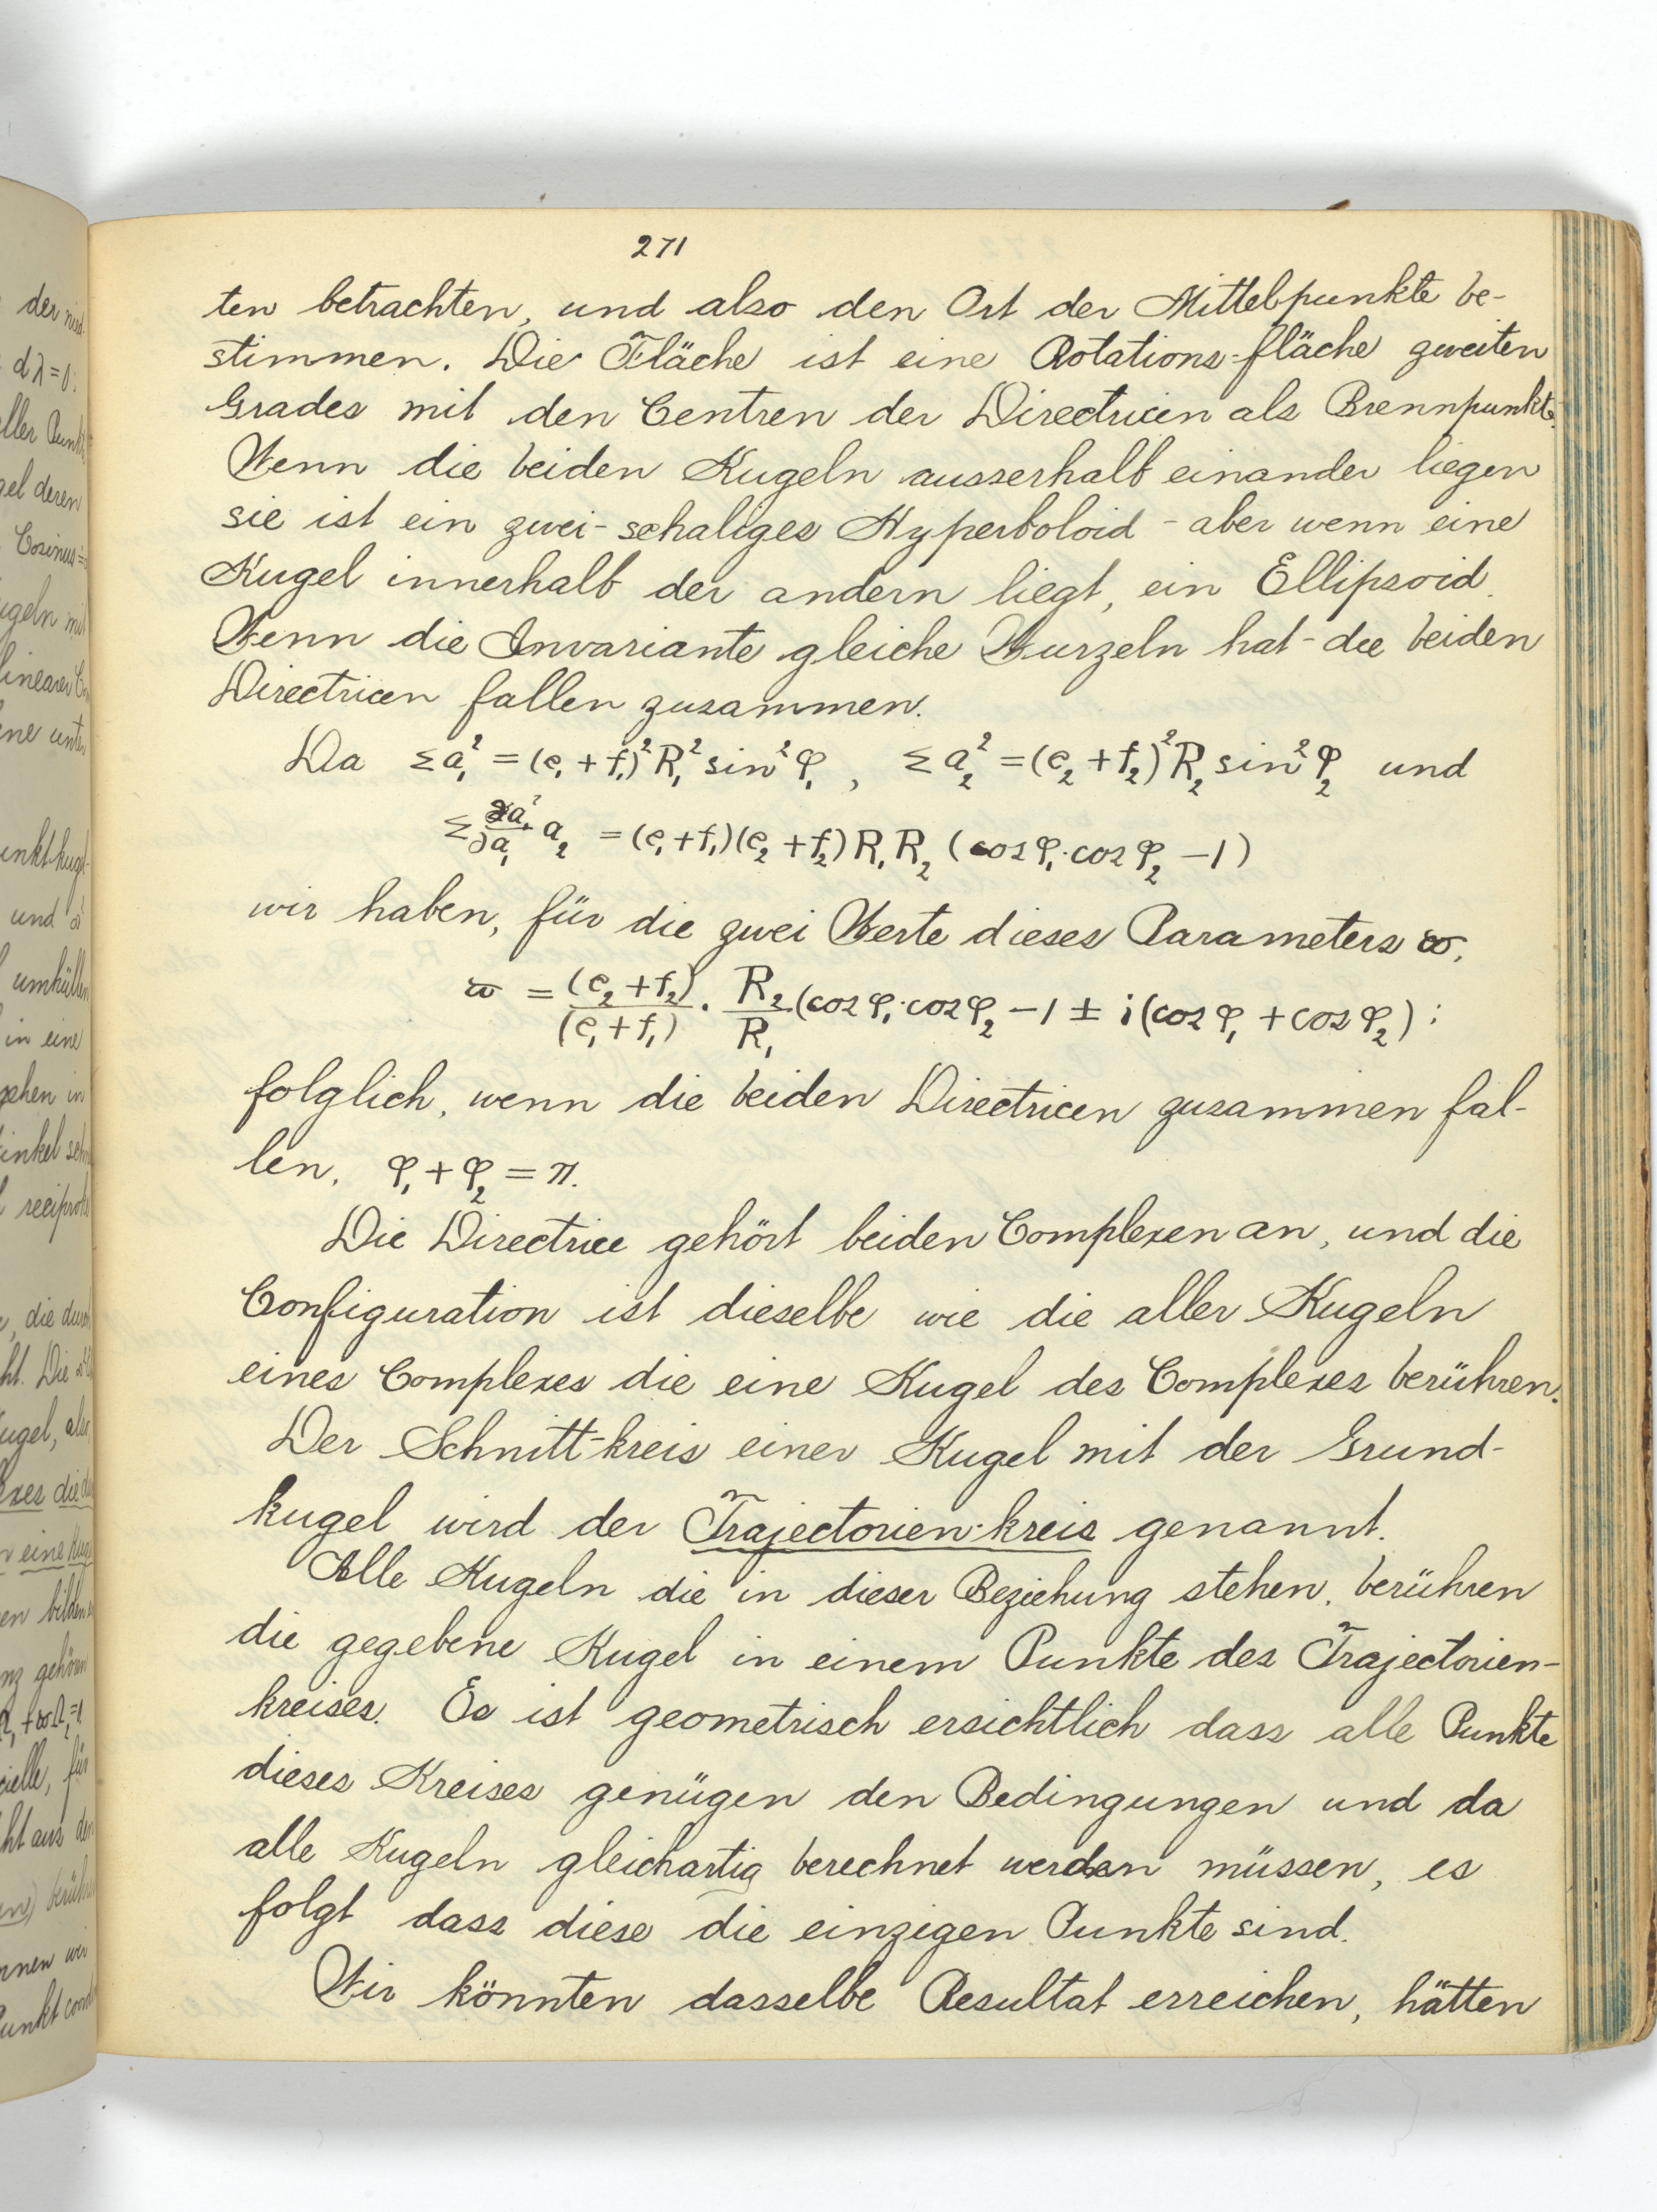 271
ten betrachten, und also den Ort der Mittelpunkte be-
stimmen. Die Fläche ist eine Rotations-fläche zweiten
Grades mit den Centren der Directricen als Brennpunkte.
Wenn die beiden Kugeln ausserhalb einander liegen
sie ist ein zwei-schaliges Hyperboloid - aber wenn eine
Kugel innerhalb der andern liegt, ein Ellipsoid.
Wenn die Invariante gleiche Wurzeln hat - die beiden
Directricen fallen zusammen.
Da Σa₁² = (e₁ + f₁)² R₁² sin² φ₁ , Σa₂² = (e₂ + f₂)² R₂ sin² φ₂ und
Σ ∂a₁²/∂a₁ a₂ = (e₁ + f₁)(e₂ + f₂) R₁ R₂ (cos φ₁ · cos φ₂ − 1)
wir haben, für die zwei Werte dieses Parameters ϖ,
ϖ = (e₂ + f₂)/(e₁ + f₁) · R₂/R₁ (cos φ₁ · cos φ₂ − 1 ± i(cos φ₁ + cos φ₂) ;
folglich, wenn die beiden Directricen zusammen fal-
len, φ₁ + φ₂ = π.
Die Directrice gehört beiden Complexen an, und die
Configuration ist dieselbe wie die aller Kugeln
eines Complexes die eine Kugel des Complexes berühren.
Der Schnitt-kreis einer Kugel mit der Grund-
kugel wird der Trajectorien-kreis genannt.
Alle Kugeln die in dieser Beziehung stehen, berühren
die gegebene Kugel in einem Punkte des Trajectorien-
kreises. Es ist geometrisch ersichtlich dass alle Punkte
dieses Kreises genügen den Bedingungen und da
alle Kugeln gleichartig berechnet werden müssen, es
folgt dass diese die einzigen Punkte sind.
Wir könnten dasselbe Resultat erreichen, hätten